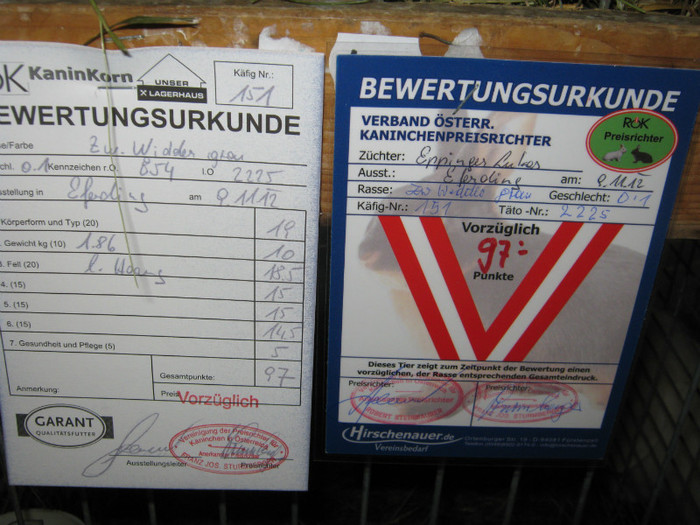 RÖK
KaninKorn
UNSER
X LAGERHAUS
Käfig Nr.:
151
EWERTUNGSURKUNDE
se/Farbe Zw. Widder grau
chl. 0.1 Kennzeichen r.O. 854 l.O 2225
sstellung in Eferding am 9.11.12
Körperform und Typ (20) 19
Gewicht kg (10) 1.86 10
3. Fell (20) l. Haarg 18.5
4. (15) 15
5. (15) 15
6. (15) 14,5
7. Gesundheit und Pflege (5) 5
Gesamtpunkte: 97
Anmerkung:
Preis Vorzüglich
GARANT
QUALITÄTSFUTTER
Vereinigung der Preisrichter für
Kaninchen in Österreich
Ausstellungsleiter
Preisrichter
BEWERTUNGSURKUNDE
VERBAND ÖSTERR.
KANINCHENPREISRICHTER
RÖK
Preisrichter
Züchter: Eppinger Lukas
Ausst.: Eferding am: 9.11.12
Rasse: Zw Widder grau Geschlecht: 0.1
Käfig-Nr.: 151 Täto -Nr.: 2225
Vorzüglich
97.-
Punkte
Dieses Tier zeigt zum Zeitpunkt der Bewertung einen
vorzüglichen, der Rasse entsprechenden Gesamteindruck.
Preisrichter:
Preisrichter:
Hirschenauer.de
Vereinsbedarf